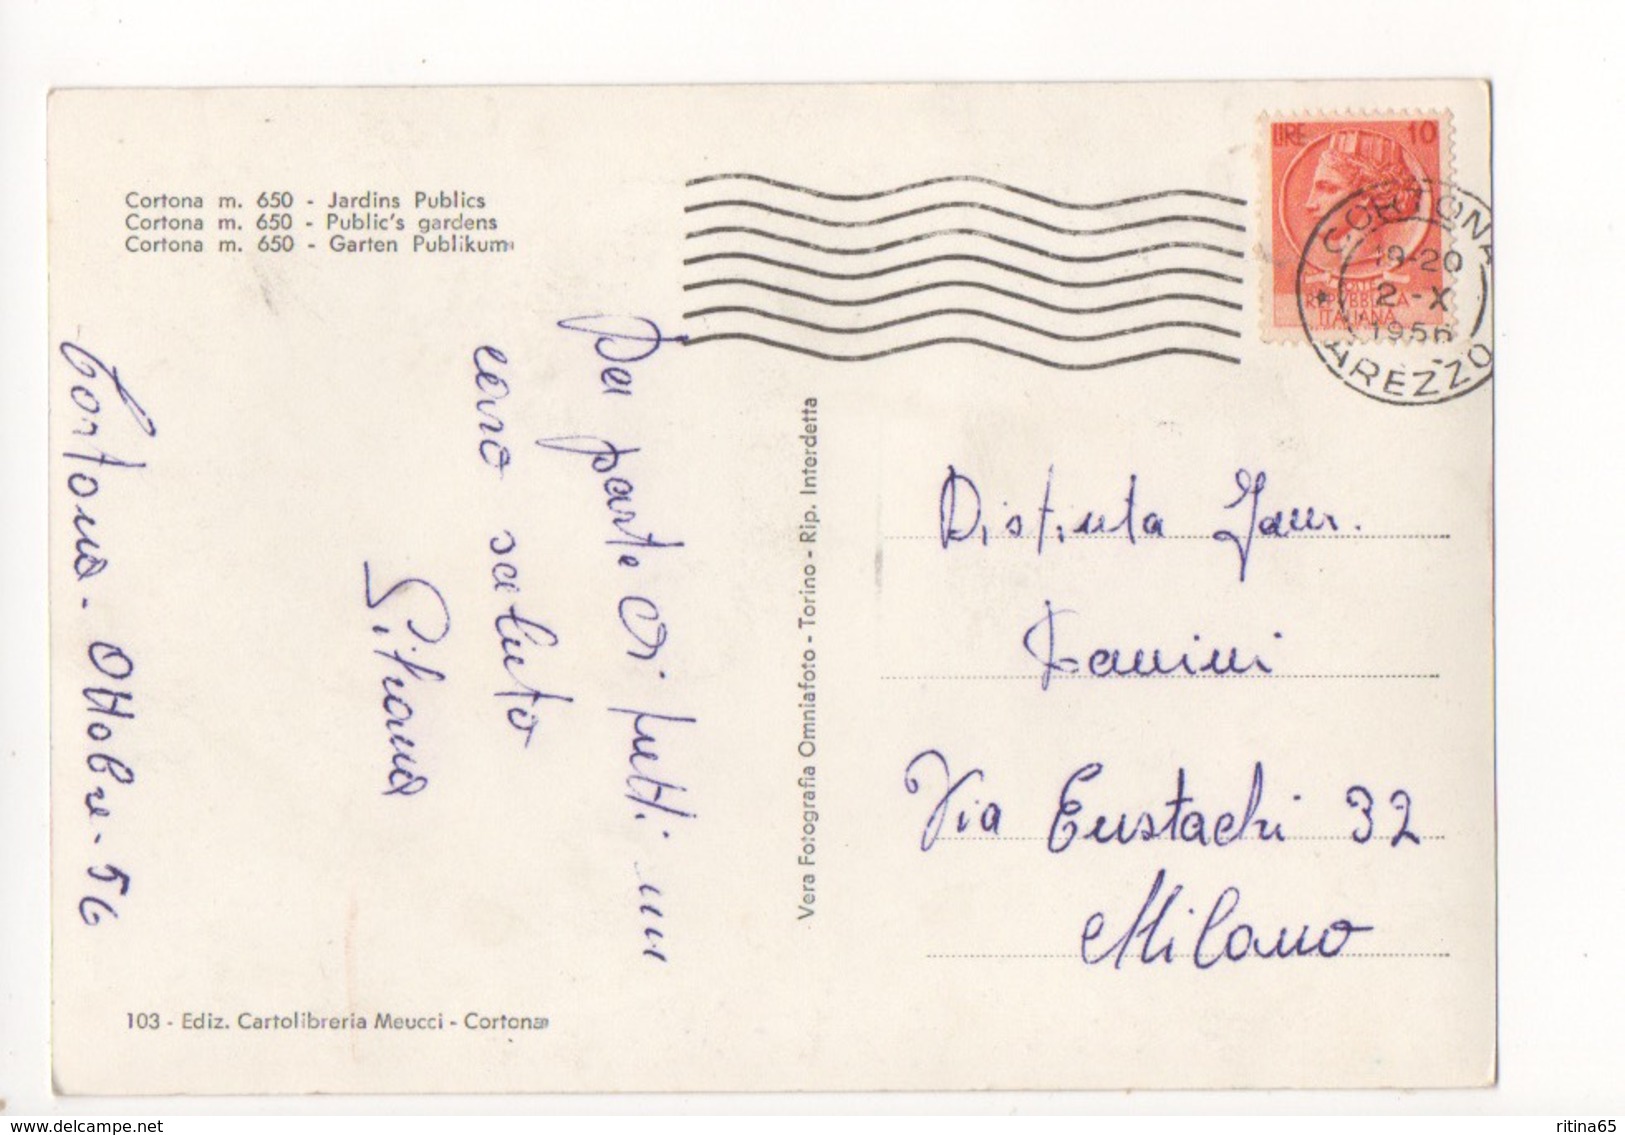 Cortona m. 650 - Jardins Publics
Cortona m. 650 - Public's gardens
Cortona m. 650 - Garten Publikum
LIRE 10
REPVBBLICA
ITALIANA
CORTONA
19-20
2-X
1956
AREZZO
Cortona - Ottobre - 56
Da parte di tutti un
caro saluto
Silvana
Vera Fotografia Omniafoto - Torino - Rip. Interdetta
Distinta Fam.
Via Eustachi 32
Milano
103 - Ediz. Cartolibreria Meucci - Cortona
www.delcampe.net
ritina65